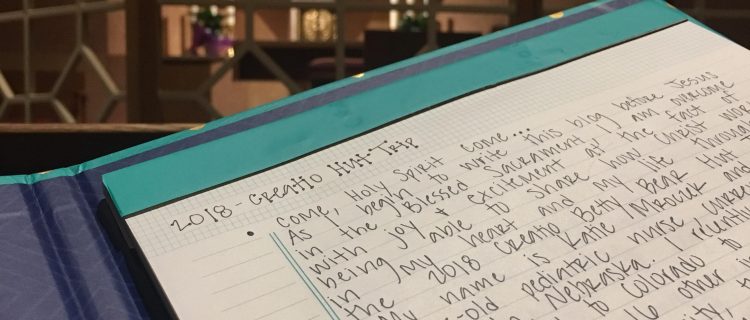 2018 - Creatio Hut Trip
• Come, Holy Spirit come...
As I begin to write this blog before Jesus
in the Blessed Sacrament, I am overcome
with joy + excitement at the fact of
being able to share how Christ
in my heart and my life through
the 2018 Creatio Betty Bear Hut
My name is Katie Mroczk and
-old pediatric nurse,
Nebraska. I recently
to Colorado to
other